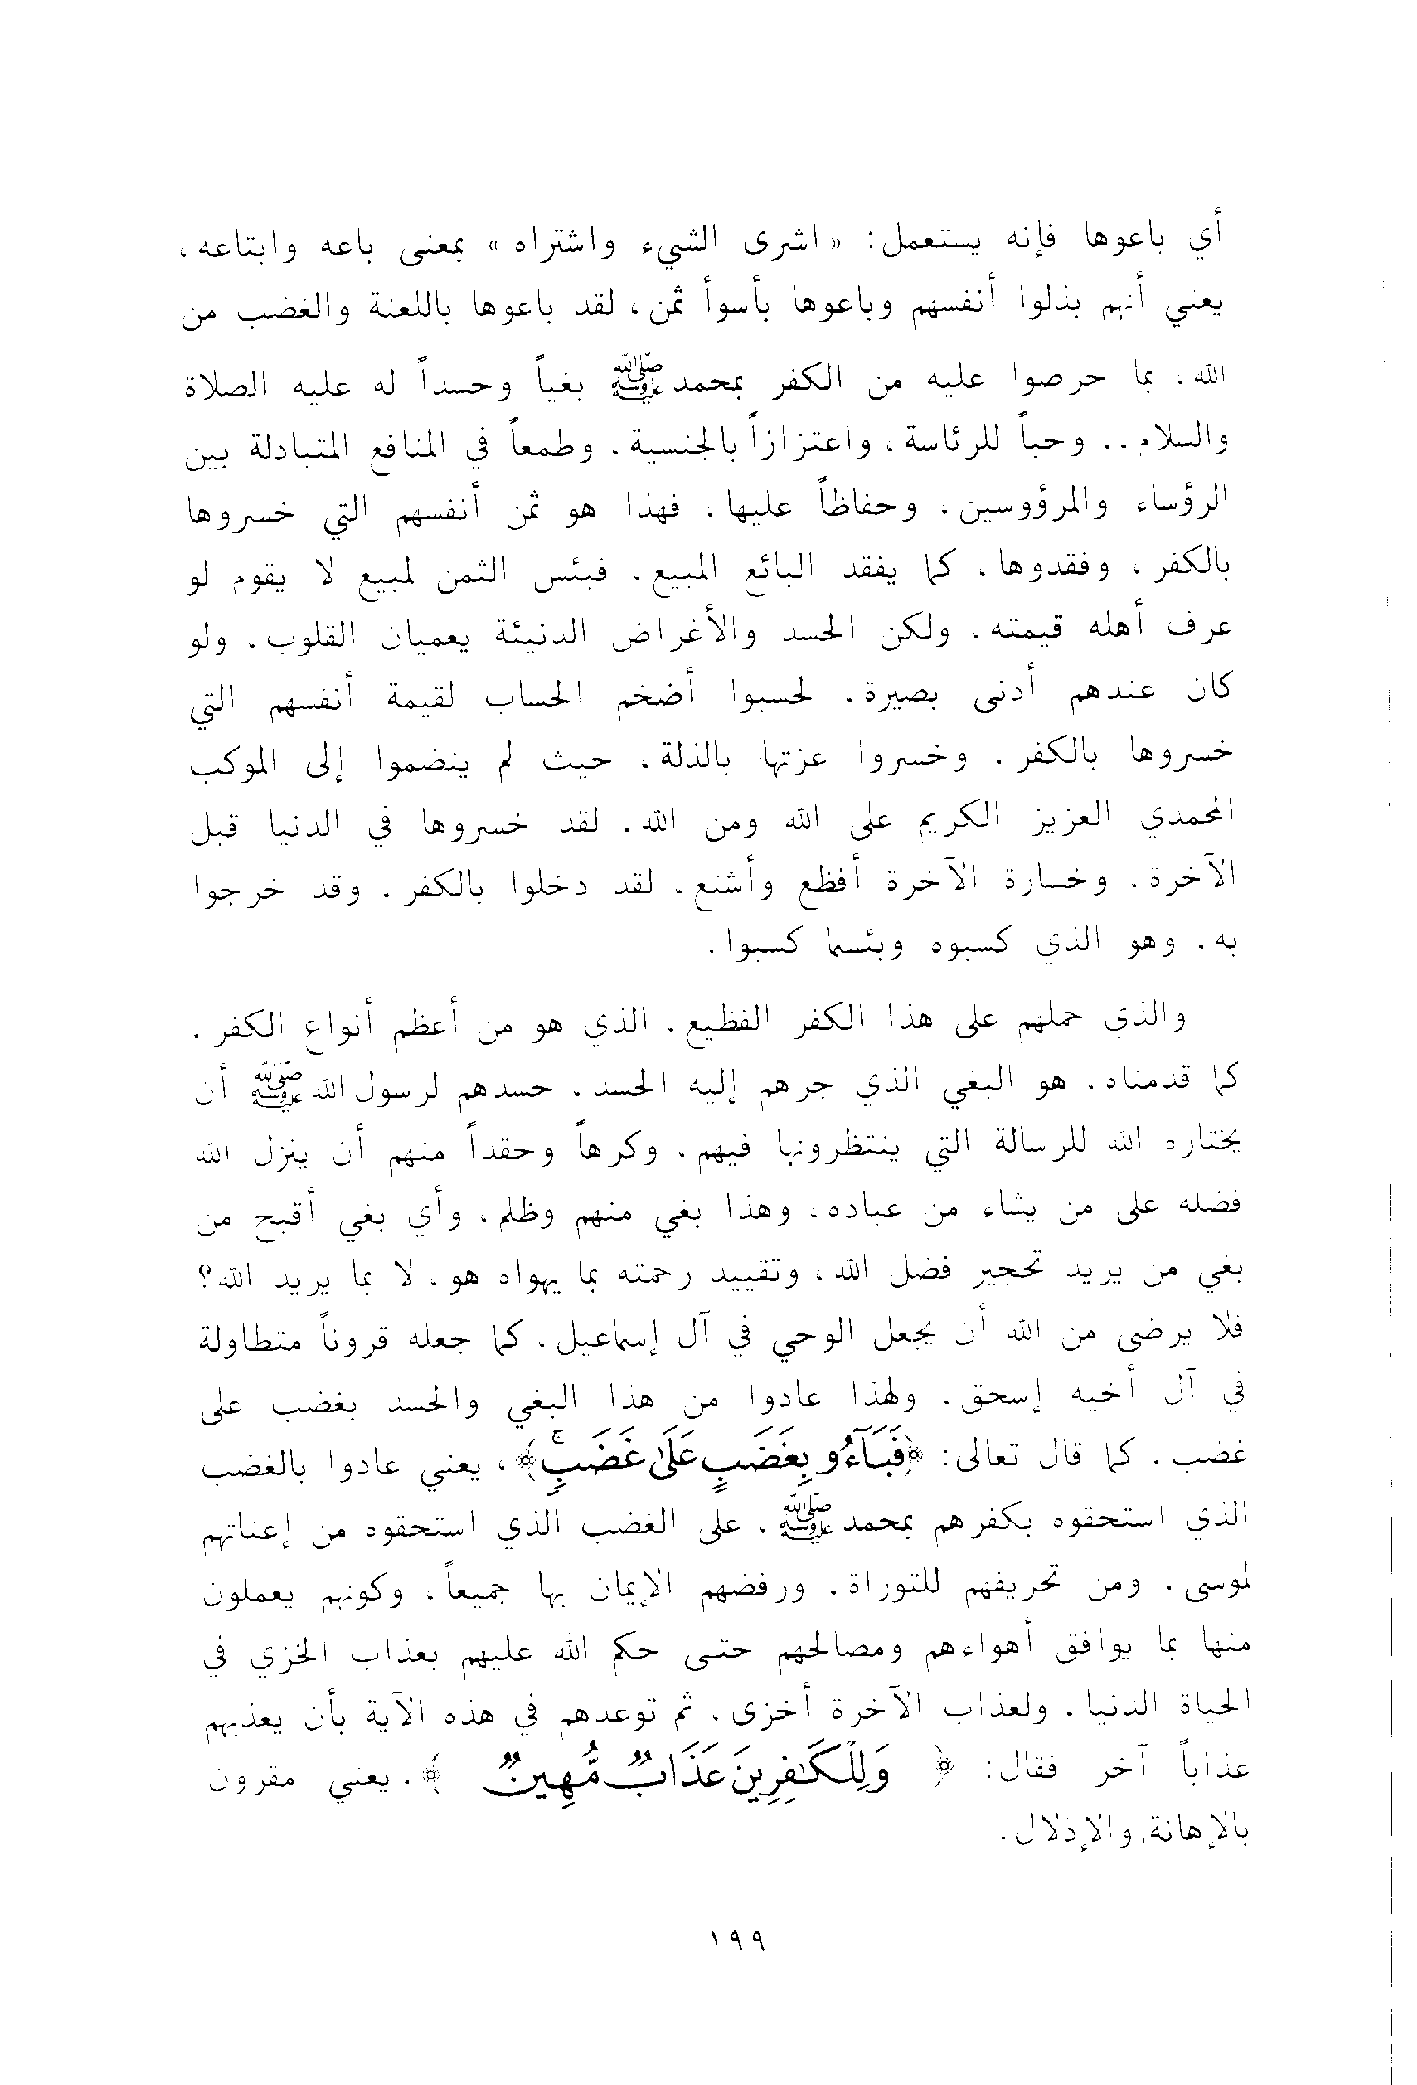 أي باعوها فإنه يستعمل: «اشرى الشيء واشتراه» بمعنى باعه وابتاعه،
يعني أنهم بذلوا أنفسهم وباعوها بأسوأ ثمن، لقد باعوها باللعنة والغضب من
الله، بما حرصوا عليه من الكفر بمحمد ﷺ بغياً وحسداً له عليه الصلاة
والسلام.. وحباً للرئاسة، واعتزازاً بالجنسية، وطمعاً في المنافع المتبادلة بين
الرؤساء والمرؤوسين، وحفاظاً عليها، فهذا هو ثمن أنفسهم التي خسروها
بالكفر، وفقدوها، كما يفقد البائع المبيع، فبئس الثمن لمبيع لا يقوم لو
عرف أهله قيمته، ولكن الحسد والأغراض الدنيئة يعميان القلوب، ولو
كان عندهم أدنى بصيرة، لحسبوا أضخم الحساب لقيمة أنفسهم التي
خسروها بالكفر، وخسروا عزتها بالذلة، حيث لم ينضموا إلى الموكب
المحمدي العزيز الكريم على الله ومن الله، لقد خسروها في الدنيا قبل
الآخرة، وخسارة الآخرة أفظع وأشنع، لقد دخلوا بالكفر، وقد خرجوا
به، وهو الذي كسبوه وبئسما كسبوا.
والذي حملهم على هذا الكفر الفظيع، الذي هو من أعظم أنواع الكفر،
كما قدمناه، هو البغي الذي جرهم إليه الحسد، حسدهم لرسول الله ﷺ أن
يختاره الله للرسالة التي ينتظرونها فيهم، وكرهاً وحقداً منهم أن ينزل الله
فضله على من يشاء من عباده، وهذا بغي منهم وظلم، وأي بغي أقبح من
بغي من يريد تحجير فضل الله، وتقييد رحمته بما يهواه هو، لا بما يريد الله؟
فلا يرضى من الله أن يجعل الوحي في آل إسماعيل، كما جعله قروناً متطاولة
في آل أخيه إسحق، ولهذا عادوا من هذا البغي والحسد بغضب على
غضب، كما قال تعالى: ﴿فَبَآءُو بِغَضَبٍ عَلَىٰ غَضَبٍۚ﴾، يعني عادوا بالغضب
الذي استحقوه بكفرهم بمحمد ﷺ، على الغضب الذي استحقوه من إعناتهم
لموسى، ومن تحريفهم للتوراة، ورفضهم الإيمان بها جميعاً، وكونهم يعملون
منها بما يوافق أهواءهم ومصالحهم حتى حكم الله عليهم بعذاب الخزي في
الحياة الدنيا، ولعذاب الآخرة أخزى، ثم توعدهم في هذه الآية بأن يعذبهم
عذاباً آخر فقال: ﴿وَلِلْكَٰفِرِينَ عَذَابٌ مُّهِينٌ﴾، يعني مقرون
بالإهانة, والإذلال.
١٩٩